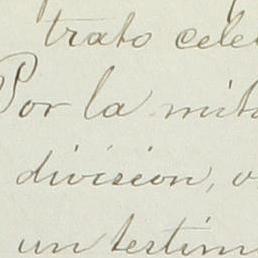 trato cele
Por la mita
division, o
un testim